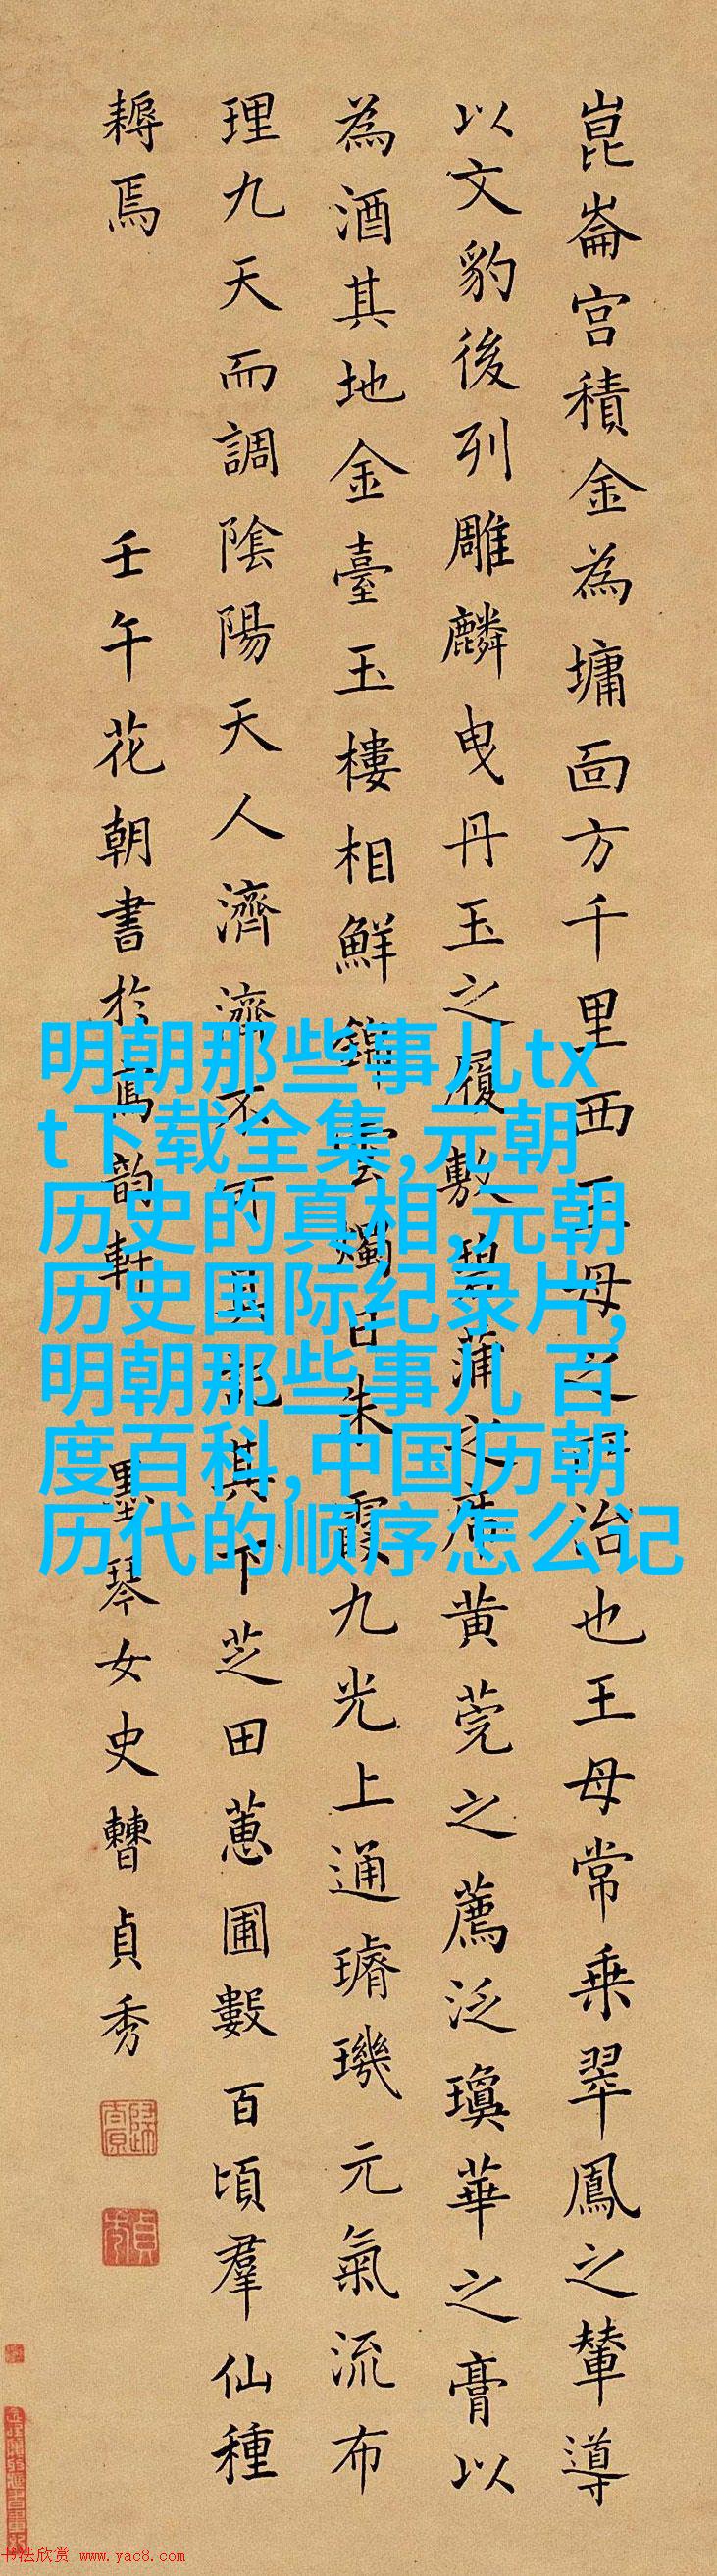 崑崙宮積金為墉面方千里西王母之所治也王母常乗翠鳳之輦導
以文豹後列雕麟曳丹玉之履敷碧蒲之席黄莞之薦泛瓊華之膏以
為酒其地金臺玉樓相鮮錦雲燭日朱霞九光上通璿璣元氣流布
理九天而調陰陽天人濟濟不可具記其下芝田蕙圃數百頃羣仙種
耨焉
壬午花朝書於寫韵軒 墨琴女史曹貞秀
明朝那些事儿tx
t下载全集,元朝
历史的真相,元朝
历史国际纪录片,
明朝那些事儿 百
度百科,中国历朝
历代的顺序怎么记
书法欣赏 www.yac8.com